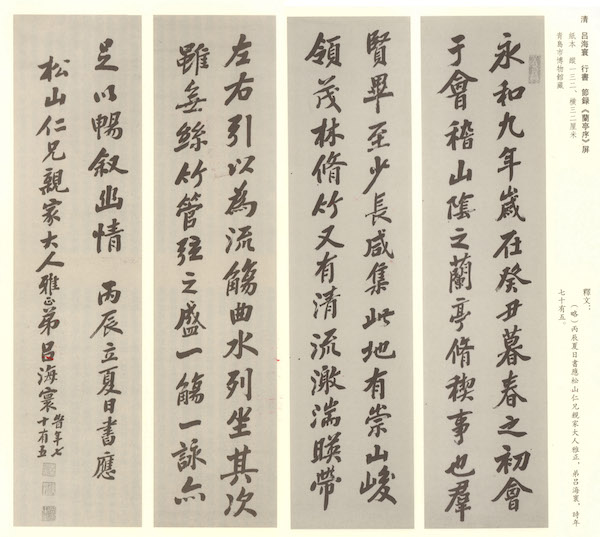 清　吕海寰　行書　節録《蘭亭序》屏
紙本　縱一三二、橫三二厘米
青島市博物館藏
釋文：
（略）丙辰夏日書應松山仁兄親家大人雅正，弟吕海寰，時年
七十有五。
永和九年歲在癸丑暮春之初會
于會稽山陰之蘭亭脩稧事也羣
賢畢至少長咸集此地有崇山峻
領茂林脩竹又有清流激湍暎帶
左右引以為流觴曲水列坐其次
雖無絲竹管弦之盛一觴一詠亦
足以暢敘幽情　丙辰立夏日書應
松山仁兄親家大人雅正弟吕海寰
時年七
十有五